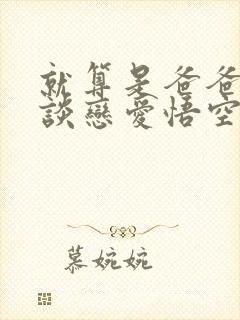 就算是爸爸
談戀愛悟空
慕婉婉